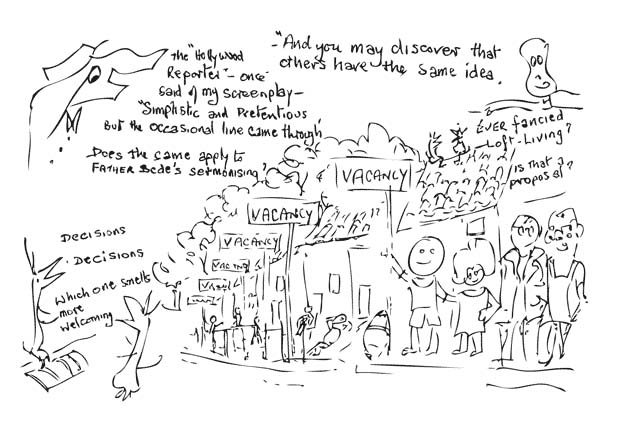 The "Hollywood
Reporter" - once
said of my screenplay -
"Simplistic and Pretentious
But the occasional line came through"
Does the same apply to
FATHER Bede's sermonising?
- "And you may discover that
others have the same idea.
EVER fancied
Loft-Living?
Is that a
proposal?
VACANCY
VACANCY
VACANCY
VACANCY
VACANCY
Decisions
Decisions
Which one smells
more
welcoming